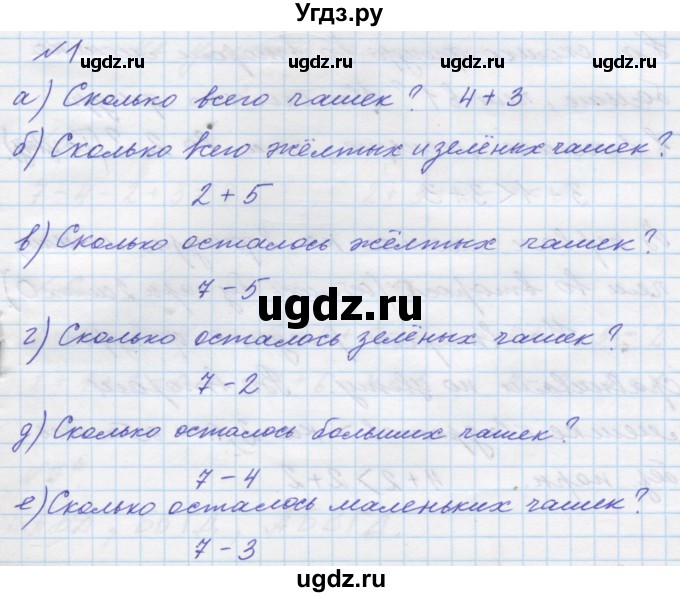 Угдз.ру
№1
ugdz.ru ugdz.ru ugdz.ru
а) Сколько всего чашек? 4+3
б) Сколько всего жёлтых и зелёных чашек?
2+5
в) Сколько осталось жёлтых чашек?
7-5
ugdz.ru
г) Сколько осталось зелёных чашек?
7-2
д) Сколько осталось больших чашек?
7-4
е) Сколько осталось маленьких чашек?
7-3
ugdz.ru